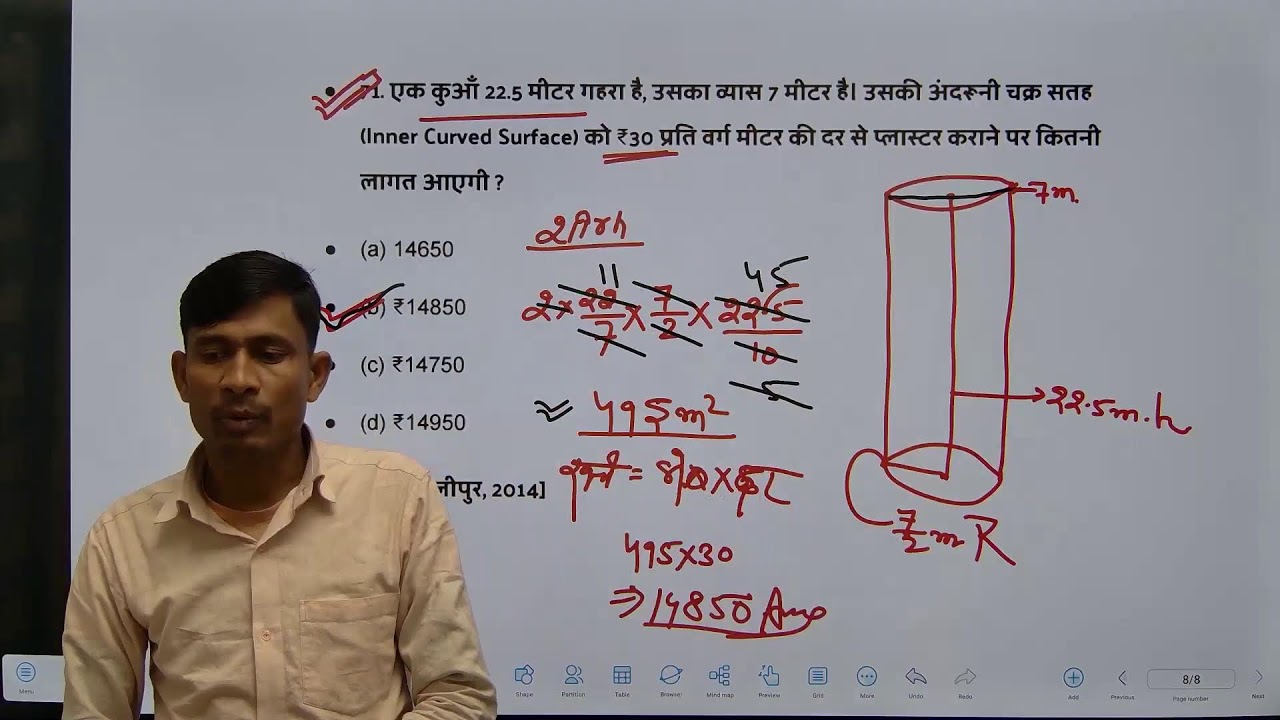 71. एक कुआँ 22.5 मीटर गहरा है, उसका व्यास 7 मीटर है। उसकी अंदरूनी चक्र सतह
(Inner Curved Surface) को ₹30 प्रति वर्ग मीटर की दर से प्लास्टर कराने पर कितनी
लागत आएगी ?
(a) 14650
(b) ₹14850
(c) ₹14750
(d) ₹14950
2πrh
11 45
2 × 22/7 × 7/2 × 225/10
5
495m²
495×30
⇒ 14850 Ans
7m.
22.5m.h
7/2 m R
Menu
Shape
Partition
Table
Browser
Mind map
Preview
Grid
More
Undo
Redo
Add
Previous
8/8
Page number
Next